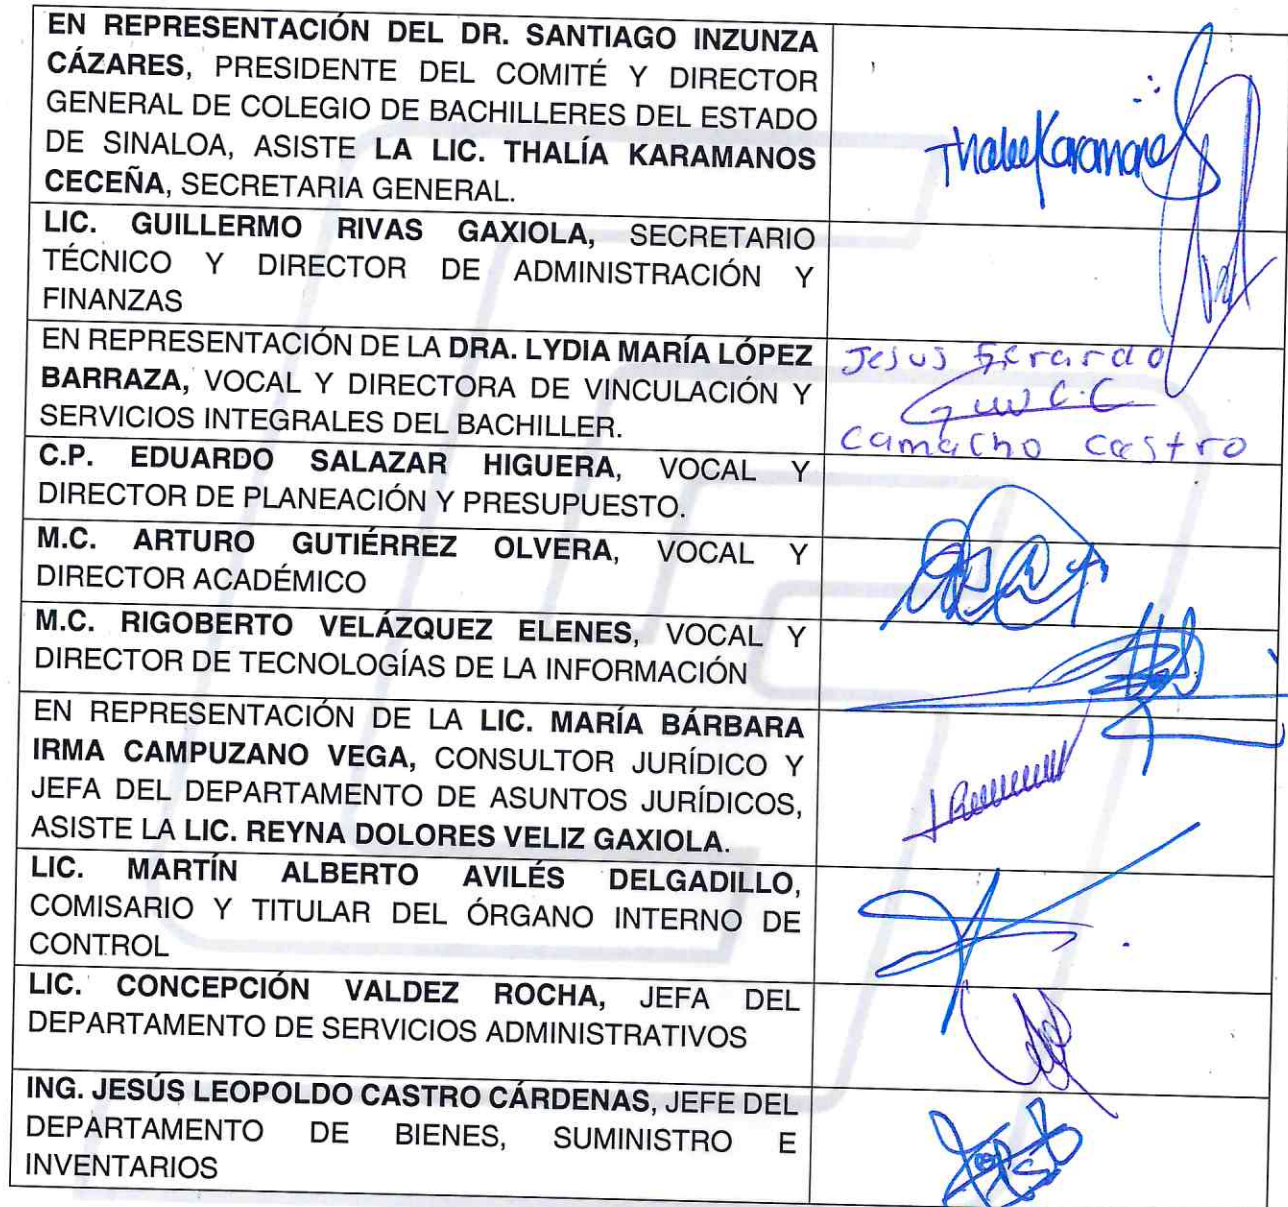 EN REPRESENTACIÓN DEL DR. SANTIAGO INZUNZA
CÁZARES, PRESIDENTE DEL COMITÉ Y DIRECTOR
GENERAL DE COLEGIO DE BACHILLERES DEL ESTADO
DE SINALOA, ASISTE LA LIC. THALÍA KARAMANOS
CECEÑA, SECRETARIA GENERAL.
LIC. GUILLERMO RIVAS GAXIOLA, SECRETARIO
TÉCNICO Y DIRECTOR DE ADMINISTRACIÓN Y
FINANZAS
EN REPRESENTACIÓN DE LA DRA. LYDIA MARÍA LÓPEZ
BARRAZA, VOCAL Y DIRECTORA DE VINCULACIÓN Y
SERVICIOS INTEGRALES DEL BACHILLER.
Jesus Gerardo
Camacho Castro
C.P. EDUARDO SALAZAR HIGUERA, VOCAL Y
DIRECTOR DE PLANEACIÓN Y PRESUPUESTO.
M.C. ARTURO GUTIÉRREZ OLVERA, VOCAL Y
DIRECTOR ACADÉMICO
M.C. RIGOBERTO VELÁZQUEZ ELENES, VOCAL Y
DIRECTOR DE TECNOLOGÍAS DE LA INFORMACIÓN
EN REPRESENTACIÓN DE LA LIC. MARÍA BÁRBARA
IRMA CAMPUZANO VEGA, CONSULTOR JURÍDICO Y
JEFA DEL DEPARTAMENTO DE ASUNTOS JURÍDICOS,
ASISTE LA LIC. REYNA DOLORES VELIZ GAXIOLA.
LIC. MARTÍN ALBERTO AVILÉS DELGADILLO,
COMISARIO Y TITULAR DEL ÓRGANO INTERNO DE
CONTROL
LIC. CONCEPCIÓN VALDEZ ROCHA, JEFA DEL
DEPARTAMENTO DE SERVICIOS ADMINISTRATIVOS
ING. JESÚS LEOPOLDO CASTRO CÁRDENAS, JEFE DEL
DEPARTAMENTO DE BIENES, SUMINISTRO E
INVENTARIOS